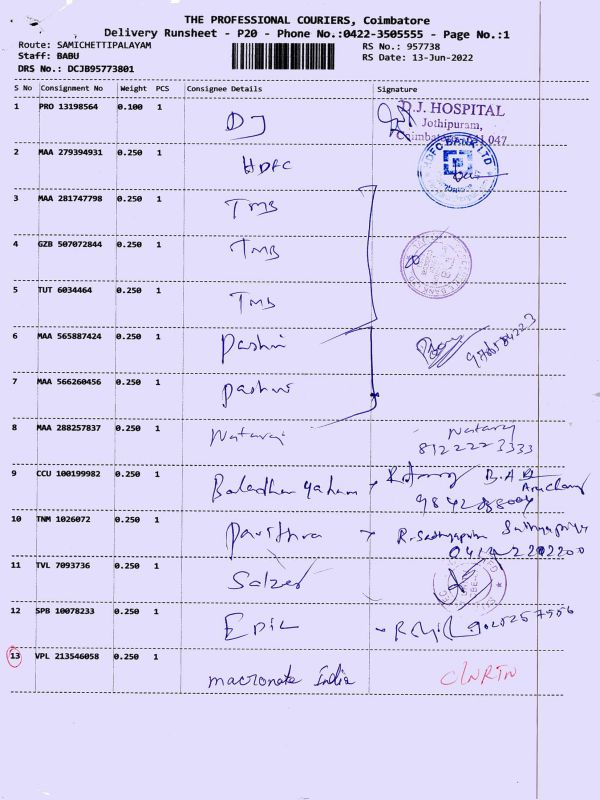 THE PROFESSIONAL COURIERS, Coimbatore
Delivery Runsheet - P20 - Phone No.:0422-3505555 - Page No.:1
Route: SAMICHETTIPALAYAM RS No.: 957738
Staff: BABU RS Date: 13-Jun-2022
DRS No.: DCJB95773801
S No Consignment No Weight PCS Consignee Details Signature
1 PRO 13198564 0.100 1 DJ D.J. HOSPITAL
Jothipuram,
047
2 MAA 279394931 0.250 1 HDFC HDFC BANK LTD
3 MAA 281747798 0.250 1 TMB
4 GZB 507072844 0.250 1 TMB
5 TUT 6034464 0.250 1 TMB
6 MAA 565887424 0.250 1
7 MAA 566260456 0.250 1
8 MAA 288257837 0.250 1 Nataraj Nataraj
8122223333
9 CCU 100199982 0.250 1
10 TNM 1026072 0.250 1
11 TVL 7093736 0.250 1 Salzer
12 SPB 10078233 0.250 1
13 VPL 213546058 0.250 1 macronate India C/NRTN